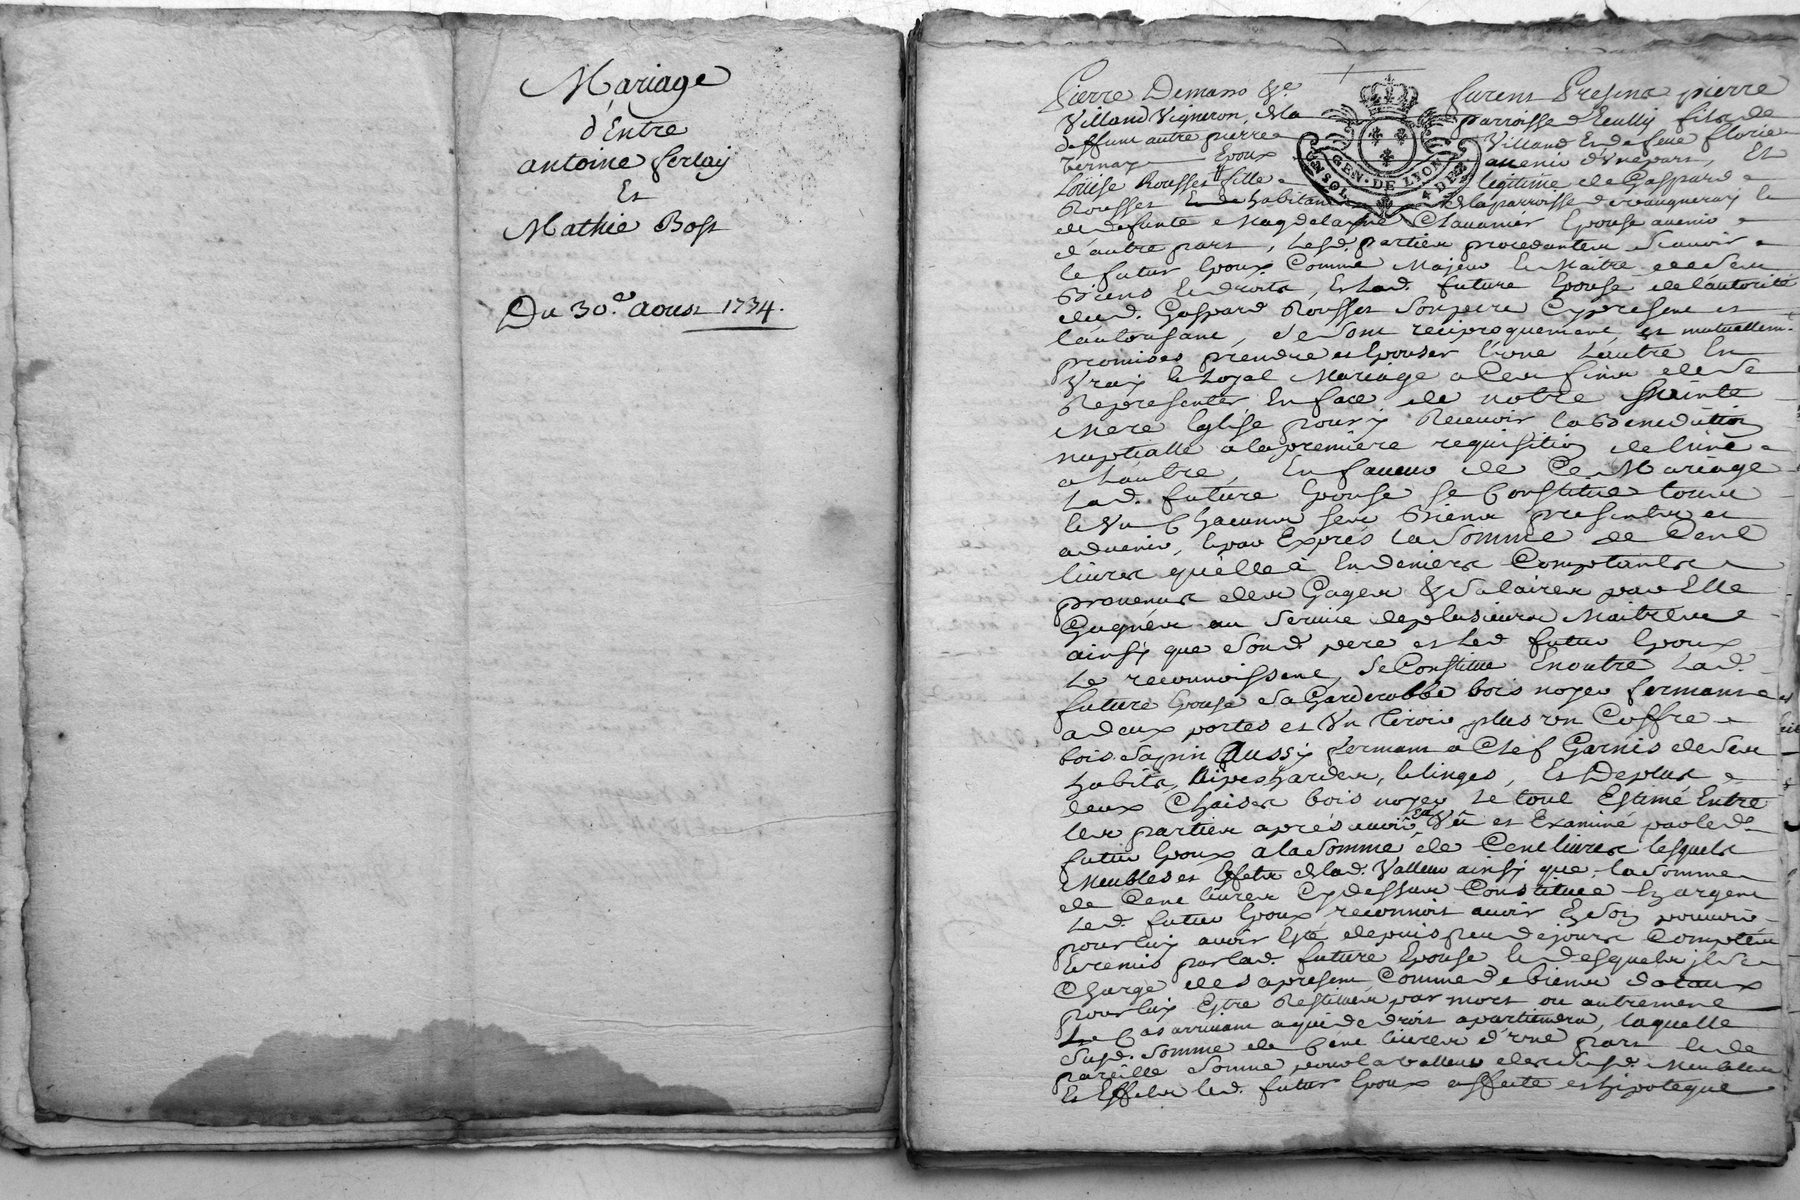 Mariage
d'Entre
antoine ferlay
Et
Mathie Bost
Du 30.e Aoust 1734.
Pierre Demasso &c furent Presens pierre
Villand Vigneron, de la parroisse d'Eully fils de
deffunt autre pierre Villand Et de feue florie
Vernay Epoux avenir d'Vne part, Et
Loüise Rousset fille legitime de Gaspard
Rousset habitant de la parroisse de vaugneray Et
de defunte Magdelaine Chavanier Epouse avenir
d'autre part, Lesd. parties procedantes scavoir
le futur Epoux Comme Majeur Et Maitre de ses
Biens Et droits, Et lad. future Epouse de l'autorité
dud. Gaspard Rousset son pere Cy present et
l'autorisant, se sont reciproquement et mutuellemt.
promises prendre et Epouser l'vne L'autre En
Vray & Loyal Mariage a Ces fins de se
Representer En face de notre Sainte
Mere Eglise pour y Recevoir la Benediction
nuptialle a la premiere requisition de l'une
a L'autre, En faveur de Ce Mariage
Lad. future Epouse se Constitue tous
& Vn Chacuns ses Biens presents et
advenir, & par Exprés la Somme de Cent
livres qu'elle à En deniers Comptants
provenus des Gages & Salaires par Elle
Gagnés au service de plusieurs Maitres
ainsy que sond. pere et Led. futur Epoux
Le reconnoissent, se Constitue En outre Lad.
future Epouse sa Garderobbe bois noyer fermante
a deux portes et Vn tiroir plus vn Coffre
bois sapin Aussy fermant a Clef Garnis de ses
habits, nipes hardes, & linges, Et De plus
deux Chaises bois noyer Le tout Estimé Entre
les parties aprés avoir Eté Vû et Examiné par led.
futur Epoux a la Somme de Cent livres lesquels
Meubles et Effets de lad. Valleur ainsy que la Somme
de Cent livres Cy dessus Constituée En argent
Led. futur Epoux reconnoit avoir En son pouvoir
pour luy avoir Eté depuis peu de jours Comptés
& remis par lad. future Epouse & desquels il se
Charge des a present Comme de biens dotaux
pour luy Estre Restitués par mort ou autrement
Le Cas arrivant a qui de droit apartiendra, laquelle
susd. Somme de Cent livres d'vne part & de
pareille Somme pour la valleur des susd. Meubles
Et Effets led. futur Epoux affecte et hipoteque
GEN. DE LYON